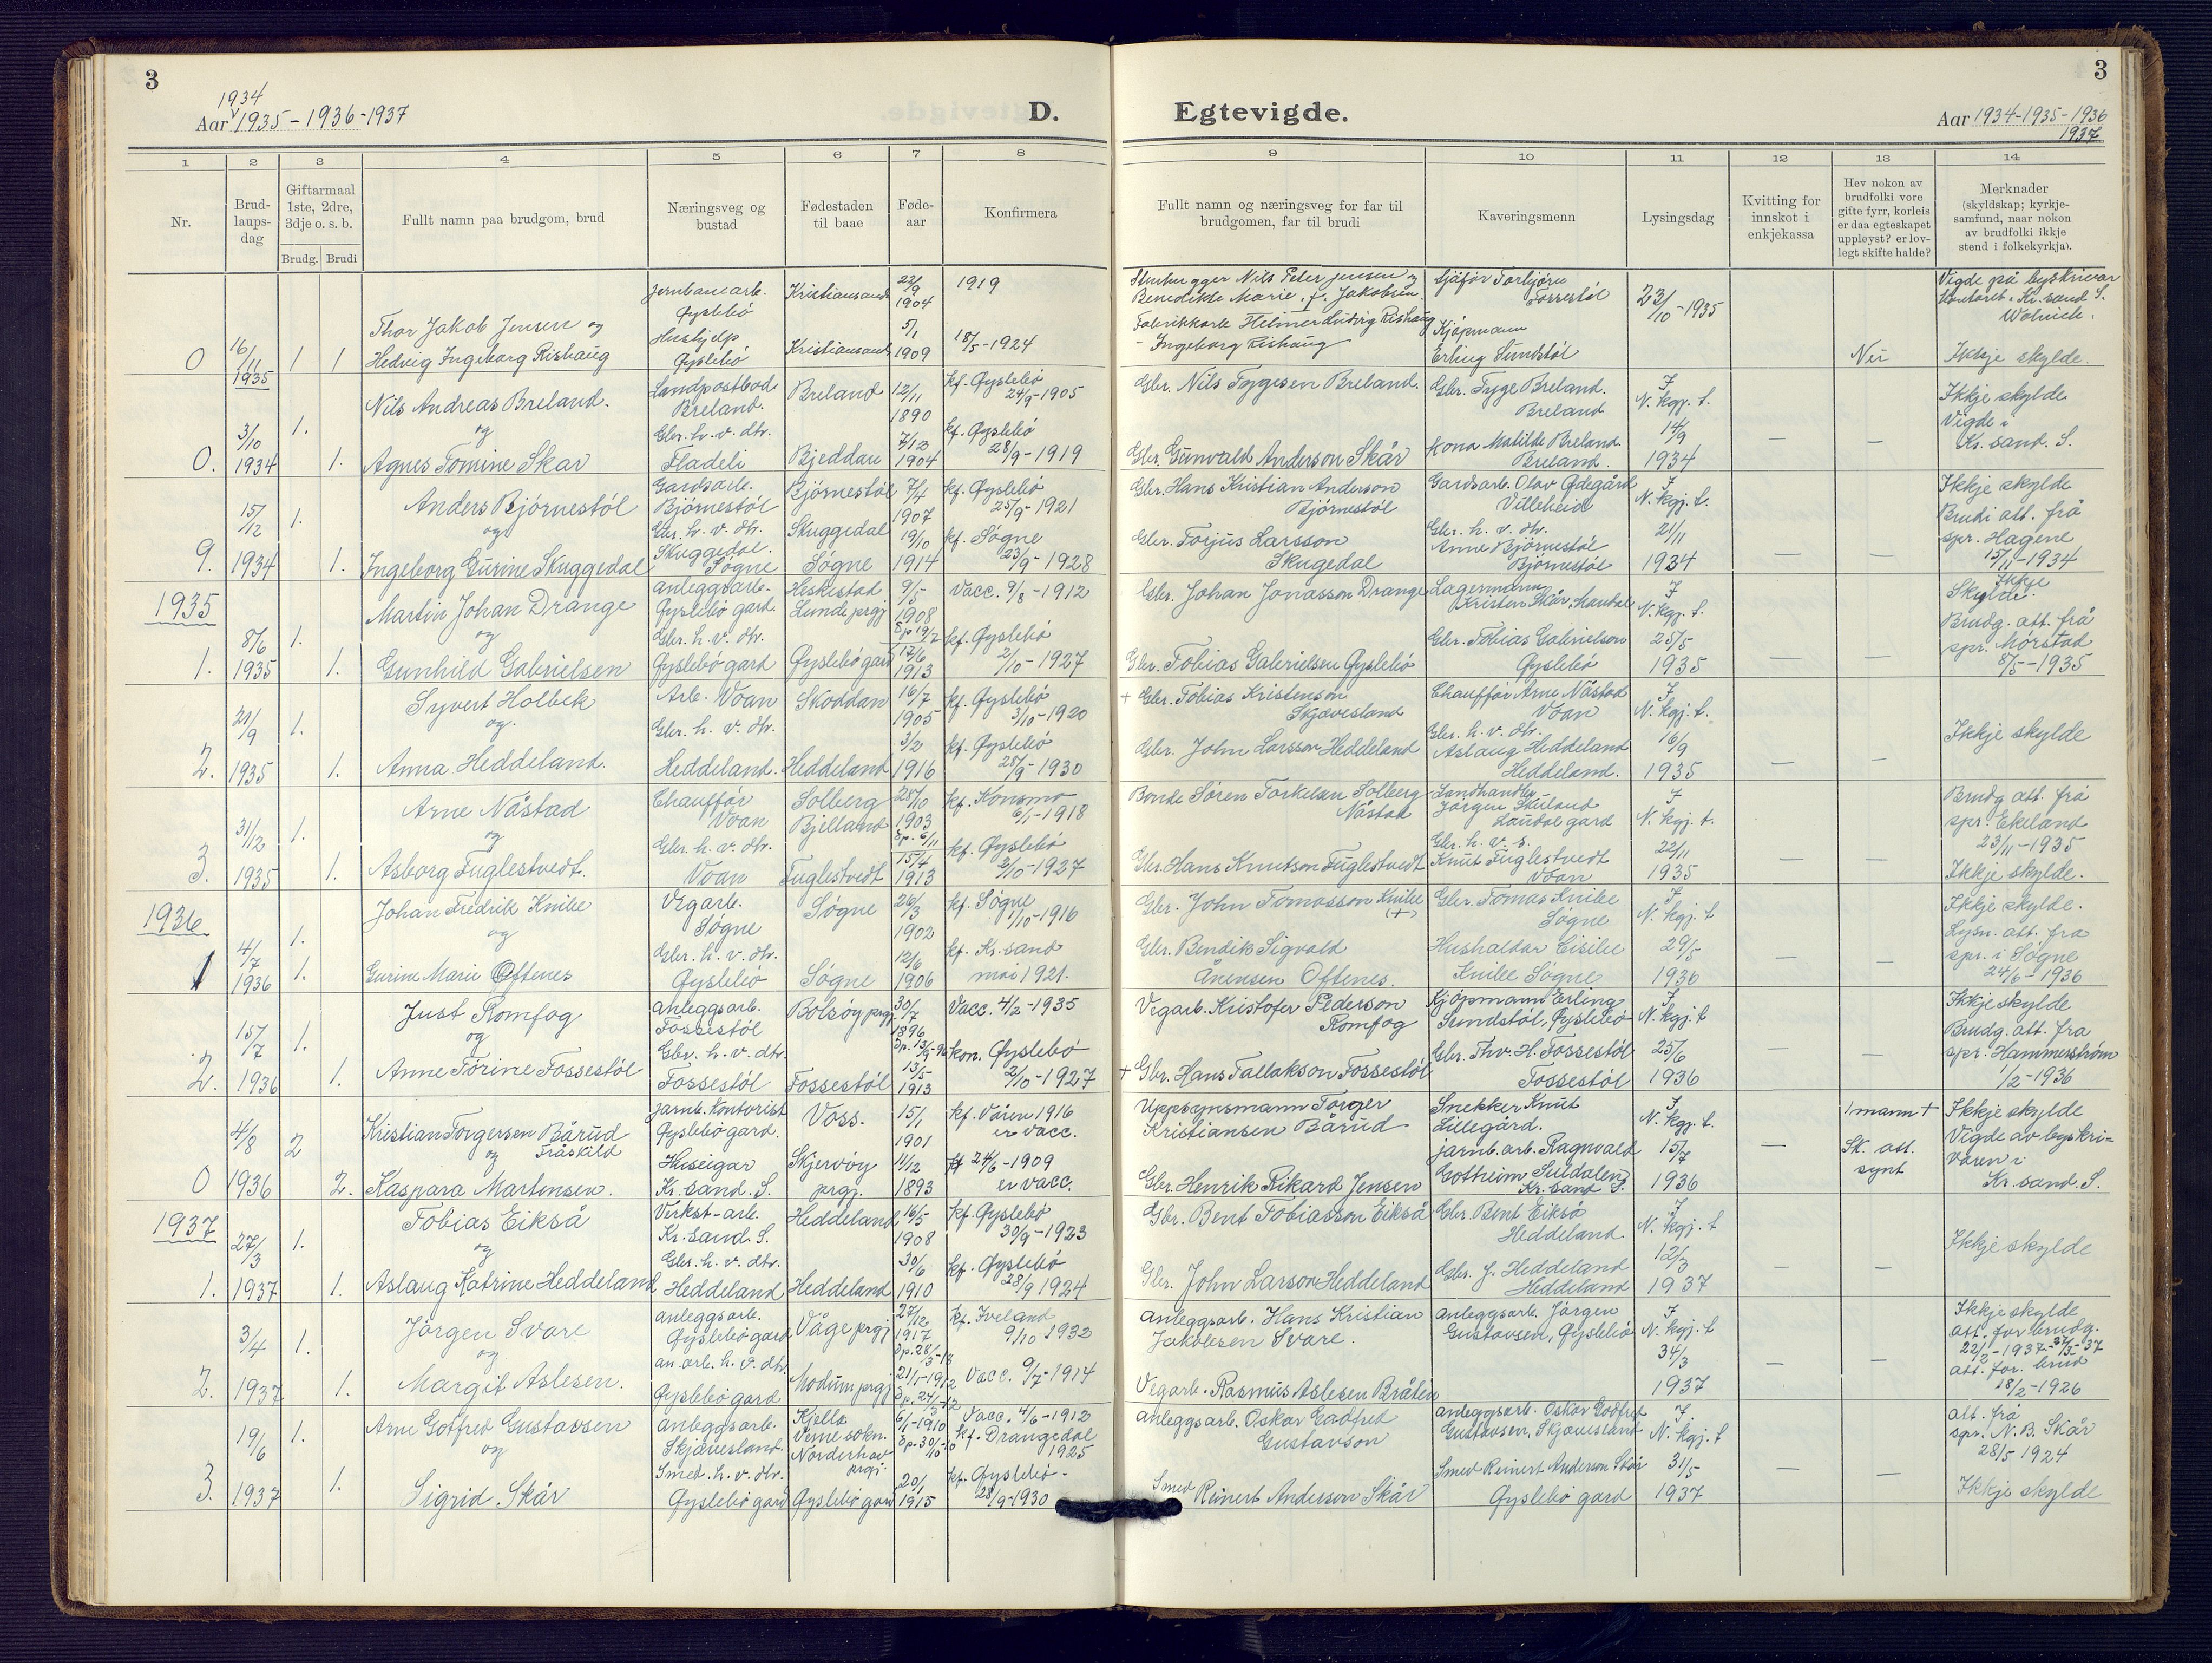 3
1934
Aar 1935 - 1936 - 1937
D.
Egtevigde.
Aar 1934-1935-1936
1937
3
1 2 3 4 5 6 7 8 9 10 11 12 13 14
Nr.
Brud-
laups-
dag
Giftarmaal
1ste, 2dre,
3dje o. s. b.
Brudg. Brudi
Fullt namn paa brudgom, brud
Næringsveg og
bustad
Fødestaden
til baae
Føde-
aar
Konfirmera
Fullt namn og næringsveg for far til
brudgomen, far til brudi
Kaveringsmenn
Lysingsdag
Kvitting for
innskot i
enkjekassa
Hev nokon av
brudfolki vore
gifte fyrr, korleis
er daa egteskapet
uppløyst? er lov-
legt skifte halde?
Merknader
(skyldskap; kyrkje-
samfund, naar nokon
av brudfolki ikkje
stend i folkekyrkja).
0 16/11 1935 1 1
Thor Jakob Jensen og
Hedvig Ingeborg Rishaug
Jernbanearb.
Øyslebö
Hushjelp
Øyslebö
Kristiansand
Kristiansand
22/9 1904
5/1 1909
1919
18/5 - 1924
Stenhugger Nils Peter Jensen og
Benedikte Marie, f. Jakobsen
Fabrikkarb. Helmer Ludvig Rishaug
- Ingeborg Rishaug
Sjåför Torbjörn
Fossestöl
Kjöpmann
Erling Sundstöl
23/10 - 1935
Nei
Vigde på byskrivar
kontoret i Kr.sand S.
Ikkje skylde.
0. 3/10 1934 1. 1.
Nils Andreas Breland.
og
Agnes Tomine Skar
Landpostbod
Breland.
Gbr. h. v. dtr.
Fladeli
Breland
Bjeddan
12/11 1890
7/12 1904
kf. Øyslebö
24/9 - 1905
kf. Øyslebö
28/9 - 1919
Gbr. Nils Tygesen Breland.
Gbr. Gunvald Anderson Skår
Gbr. Tyge Breland.
Breland
Kona Matilde Breland
Breland.
I
N. kgj. f.
14/9
1934
Ikkje skylde
Vigde i
Kr. sand. S.
9. 15/12 1934 1. 1.
Anders Bjørnestöl
og
Ingeborg Gurine Skuggedal
Gardsarb.
Bjørnestöl
Gbr. h. v. dtr.
Skuggedal.
Søgne
Bjørnestöl
Skuggedal
Søgne
7/4 1907
19/10 1914
kf. Øyslebö
25/9 - 1921
kf. Søgne
23/9 - 1928
Gbr. Hans Kristian Anderson
Bjørnestöl
Gbr. Torjus Larsson
Skugedal
Gardsarb. Olav Ødegård
Villeheid
Gbr. h. v. dtr.
Anne Bjørnestöl
Bjørnestöl
I
N. kgj. f.
21/11
1934
Ikkje skylde
Brudi att. frå
spr. Hagene
15/11 - 1934
1935
1. 8/6 1935 1. 1.
Martin Johan Drange
og
Gunhild Gabrielsen
anleggsarb.
Øyslebö gard.
Gbr. h. v. dtr.
Øyslebö gard
Heskestad
Lunde prgj
Øyslebö gard
9/5 1908
Dp 19/7
12/6 1913
Vacc. 9/8 - 1912
kf. Øyslebö
2/10 - 1927
Gbr. Johan Jonasson Drange
Gbr. Tobias Gabrielsen Øyslebö
Lagermann
Kristen Skår, Mandal
Gbr. Tobias Gabrielson
Øyslebö
I
N. kgj. f.
25/5
1935
Ikkje
Skylde.
Brudg. att. frå
spr. Mørstad
8/5 - 1935
2. 21/9 1935 1. 1.
Syvert Holbek
og.
Anna Heddeland.
Arb. Voan
Gbr. h. v. dtr.
Heddeland.
Skoddan
Heddeland
16/7 1905
3/2 1916
kf. Øyslebö
3/10 - 1920
kf. Øyslebö
28/9 - 1930
+ Gbr. Tobias Kristenson
Skjævesland
Gbr. John Larsson Heddeland
Chaufför Arne Nåstad
Voan
Gbr. h. v. dtr.
Aslaug Heddeland
Heddeland.
I
N. kgj. f.
16/9
1935
Ikkje skylde
3. 31/12 1935 1. 1.
Arne Nåstad
og
Asborg Fuglestvedt.
Chaufför
Voan
Gbr. h. v. dtr.
Voan
Solberg
Bjelland
Fuglestvedt
28/10 1903
Dp. 6/11
15/4 1913
kf. Konsmo
6/1 - 1918
kf. Øyslebö
2/10 - 1927
Bonde Sören Torkelsen Solberg
Nåstad
Gbr. Hans Knutson Fuglestvedt
Landhandler
Jörgen Skuland
Laudal gard
Gbr. h. v. s.
Knut Fuglestvedt
Voan
I
N. kgj. f.
22/11
1935
Brudg att. frå
spr. Ekeland
23/11 - 1935
Ikkje skylde.
1936
1 4/7 1936 1. 1.
Johan Fredrik Knibe
og
Gurine Marie Oftenes
Vegarb.
Søgne
Gbr. h. v. dtr.
Øyslebö
Søgne
Søgne
26/3 1902
12/6 1906
kf. Søgne
1/10 - 1916
kf. Kr. sand
mai 1921.
Gbr. John Tomasson Knibe
(+)
Gbr. Bendik Sigvald
Ånensen Oftenes.
Gbr. Tomas Knibe
Søgne
Hushaldar Cisilie
Knibe Søgne
I
N. kgj. f
29/5
1936
Ikkje skylde.
Lysn. att. fra
spr. i Søgne
24/6 - 1936
2. 15/7 1936 1. 1.
Just Romfog
og
Anne Torine Fossestöl
anleggsarb.
Fossestöl
Gbr. h. v. dtr.
Fossestöl
Bolsøy prgj
Fossestöl
30/7 1896
Dp. 13/9-96
13/5 1913
Vacc. 4/2 - 1935
kon. Øyslebö
2/10 - 1927
Vegarb. Kristofer Pederson
Romfog
+ Gbr. Hans Tallakson Fossestöl
Kjöpmann Erling
Sundstöl, Øyslebö
Gbr. Thv. H. Fossestöl
Fossestöl
I
N. kgj. f
25/6
1936
Ikkje skylde
Brudg. att. fra
spr. Hammerström
1/2 - 1936
0 4/8 1936 2 2.
Kristian Torgersen Bårud
og Fråskild
Kaspara Martensen.
jarnb. Kontorist
Øyslebö gard.
Huseigar
Kr. sand. S.
Voss.
Skjervöy
prgj.
15/1 1901
11/12 1893
kf. Våren 1916
er vacc.
24/6 - 1909
er vacc.
Uppsynsmann Torger
Kristiansen Bårud
Gbr. Henrik Rikard Jensen
Snekker Knut
Lillegård.
jarnb. arb. Ragnvald
Gotheim Suldalen
Kr. sand S.
I
N. kgj. f.
15/7
1936
1 mann +
Sk. att.
synt
Ikkje skylde
Vigde av byskri-
varen i
Kr. sand. S.
1937
1. 27/3 1937 1. 1.
Tobias Eikså
og
Aslaug Katrine Heddeland
Verkst-arb.
Kr. sand. S.
Gbr. h. v. dtr.
Heddeland
Heddeland
Heddeland
16/5 1908
30/6 1910
kf. Øyslebö
30/9 - 1923
kf. Øyslebö
28/9 1924
Gbr. Bent Tobiasson Eikså
Gbr. John Larson Heddeland
Gbr. Bent Eikså
Heddeland
Gbr. J. Heddeland
Heddeland
I
N. kgj. f
12/3
1937
Ikkje skylde
2. 3/4 1937 1. 1.
Jörgen Svare
og
Margit Aslesen.
anleggsarb.
Øyslebö gard
an. arb. h. v. dtr.
Øyslebö gard
Våge prgj
Modum prgj
27/12 1917
Dp. 28/3-18
21/1 - 1912
Dp. 24/3-12
kf. Iveland
9/10 1932
Vacc. 9/7 - 1914
anleggsarb. Hans Kristian
Jakobsen Svare.
Vegarb. Rasmus Aslesen Bråten
anleggsarb. Jörgen
Gustavsen, Øyslebö
I
N. kgj. f
1937
Ikkje skylde
att. for brudg.
22/2 - 1937
att. for. brud
18/2 - 1926
3. 19/6 1937 1. 1.
Arne Gotfred Gustavsen
og
Sigrid Skår
anleggsarb.
Skjævesland.
Smed. h. v. dtr.
Øyslebö gard
Veme sokn.
Norderhov
prgj.
Øyslebö gard
6/1 - 1910
Dp. 30/10-10
20/1 1915
Vacc. 4/6 - 1912
kf. Drangedal
1925
kf. Øyslebö.
28/9 - 1930
anleggsarb. Oskar Gadfred
Gustavson
Smed Reinert Anderson Skår
anleggsarb. Oskar Godfred
Gustavsen, Skjævesland
Smed Reinert Anderson Skår
Øyslebö gard
I
N. kgj. f
31/5
1937
att. frå
spr. N. B. Skår
28/5 1924
Ikkje skylde